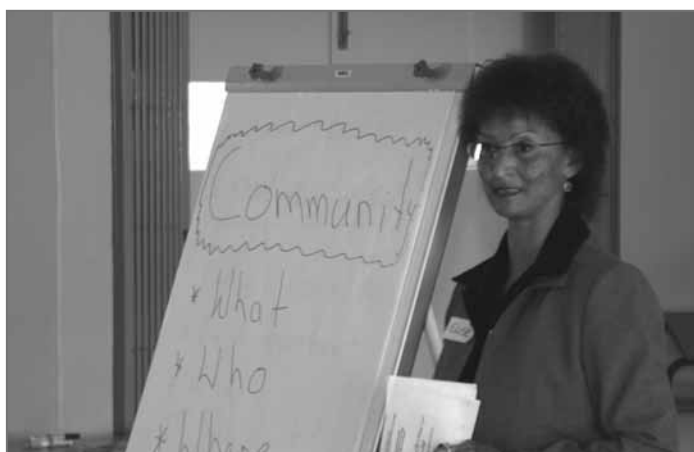 Community
* What
* Who
* Where